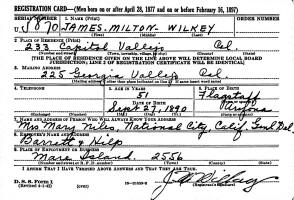 REGISTRATION CARD—(Men born on or after April 28, 1877 and on or before February 16, 1897)
SERIAL NUMBER 1. NAME (Print) ORDER NUMBER
U 1870 JAMES. MILTON- WILKEY
2. PLACE OF RESIDENCE (Print)
233 Capitol Vallejo Cal.
[THE PLACE OF RESIDENCE GIVEN ON THE LINE ABOVE WILL DETERMINE LOCAL BOARD
JURISDICTION; LINE 2 OF REGISTRATION CERTIFICATE WILL BE IDENTICAL]
3. MAILING ADDRESS
225 Georgia Vallejo Cal
4. TELEPHONE 5. AGE IN YEARS 6. PLACE OF BIRTH
51 Flagstaff
DATE OF BIRTH
Sept. 27, 1890 Arizona
7. NAME AND ADDRESS OF PERSON WHO WILL ALWAYS KNOW YOUR ADDRESS
Mrs Mary Niles, National City, Calif. Genl Del.
8. EMPLOYER'S NAME AND ADDRESS
Barrett & Hilp
9. PLACE OF EMPLOYMENT OR BUSINESS
Mare Island. 2556
I AFFIRM THAT I HAVE VERIFIED ABOVE ANSWERS AND THAT THEY ARE TRUE.
D. S. S. Form 1
(Revised 4-1-42)
J M Wilkey